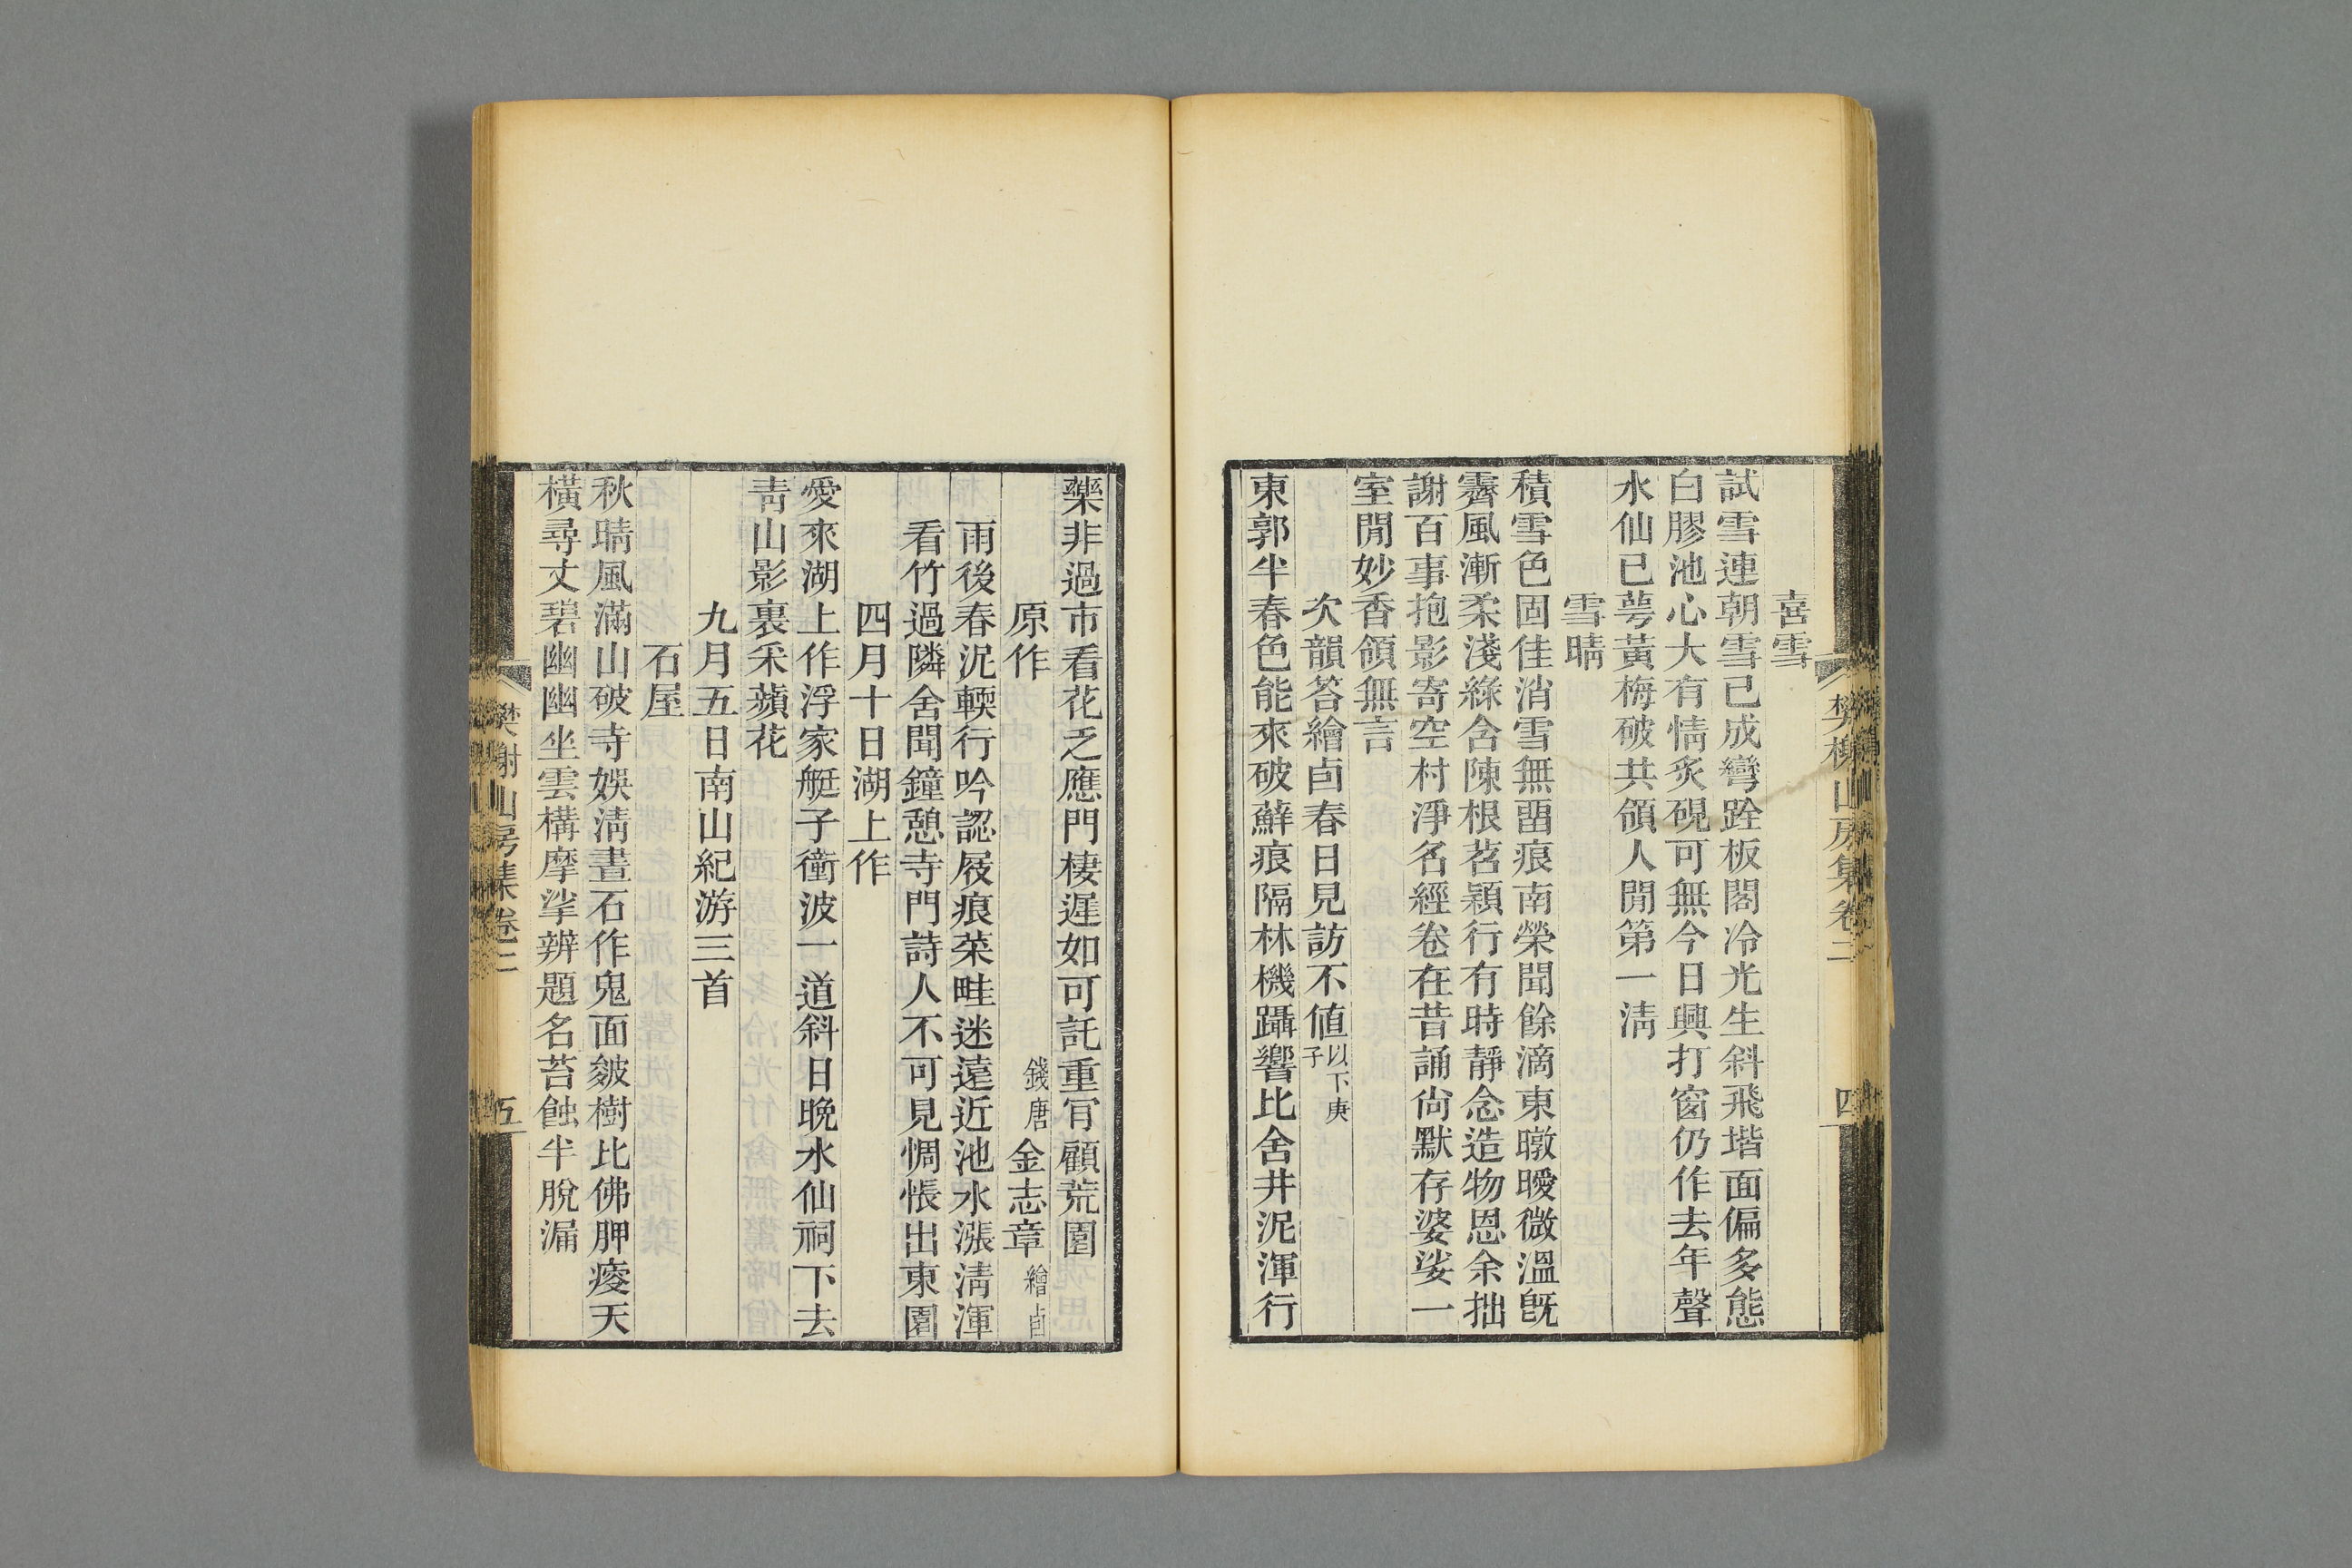 樊榭山房集卷二
四
喜雪
試雪連朝雪已成彎跧板閣冷光生斜飛堦面偏多態
白膠池心大有情炙硯可無今日興打窗仍作去年聲
水仙已萼黃梅破共領人閒第一淸
雪晴
積雪色固佳消雪無畱痕南榮聞餘滴東暾曖微溫旣
霽風漸柔淺綠含陳根茗穎行有時靜念造物恩余拙
謝百事抱影寄空村淨名經卷在昔誦尙默存婆娑一
室閒妙香領無言
次韻答繪卣春日見訪不値以下庚子
東郭半春色能來破蘚痕隔林機躡響比舍井泥渾行
藥非過市看花乏應門棲遲如可託重肎顧荒園
原作 錢唐金志章繪卣
雨後春泥輭行吟認屐痕菜畦迷遠近池水漲淸渾
看竹過隣舍聞鐘憩寺門詩人不可見惆悵出東園
四月十日湖上作
愛來湖上作浮家艇子衝波一道斜日晚水仙祠下去
靑山影裏采蘋花
九月五日南山紀游三首
石屋
秋晴風滿山破寺娛淸晝石作鬼面皴樹比佛胛痠天
橫尋丈碧幽幽坐雲構摩挲辨題名苔蝕半脫漏
樊榭山房集卷二
五